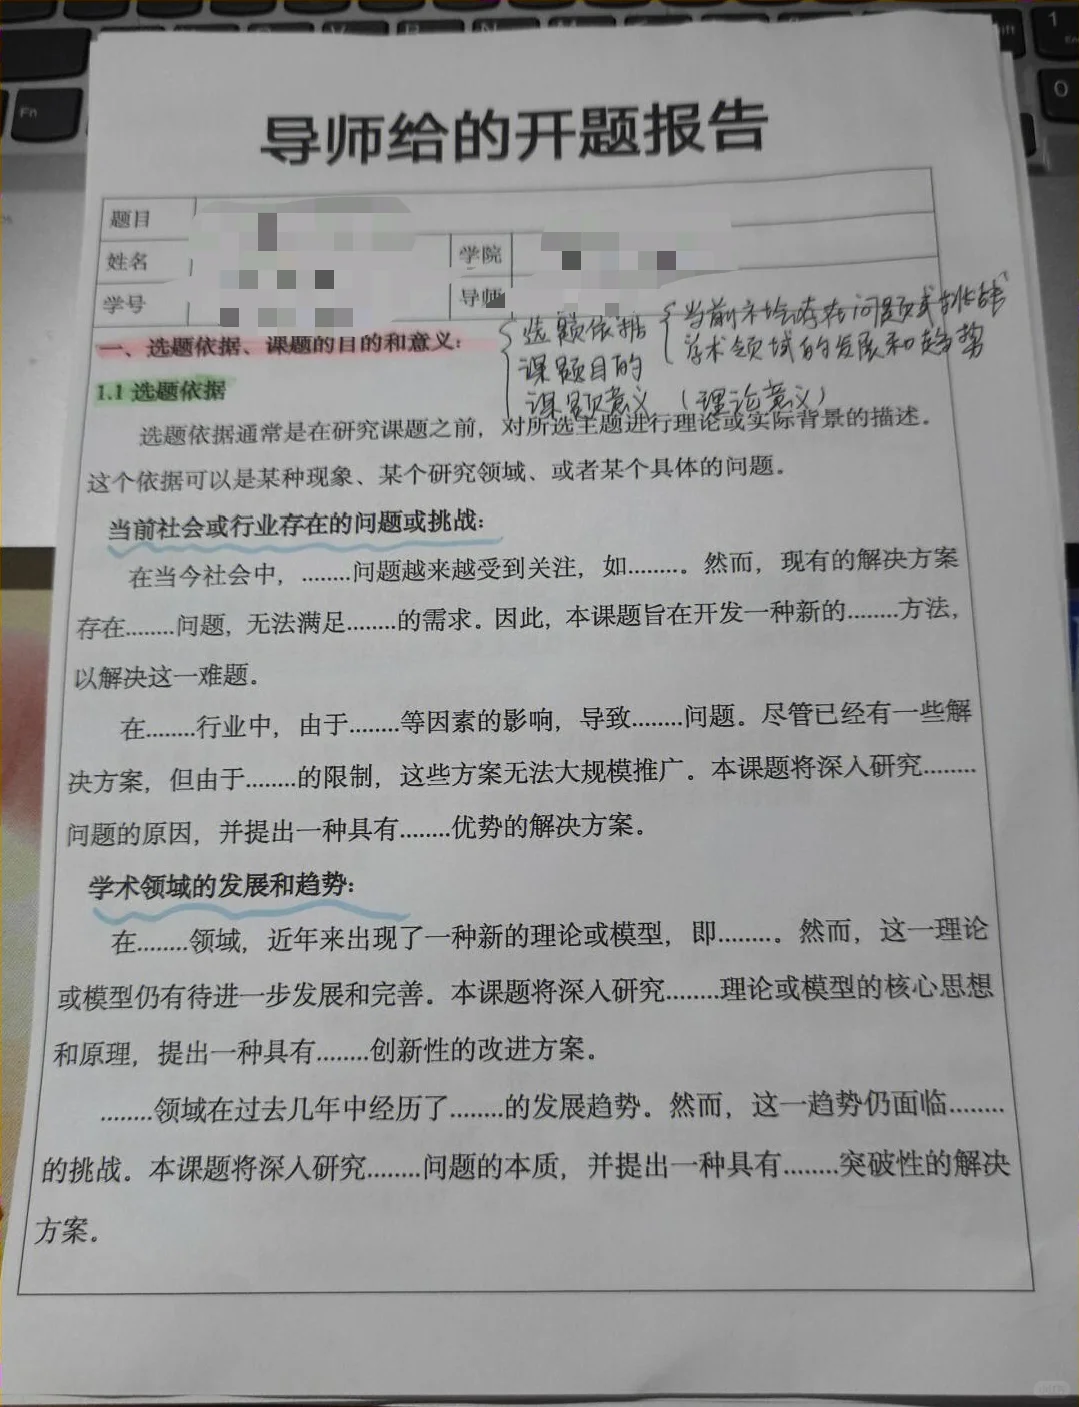 Fn
1
0
导师给的开题报告
题目
姓名
学院
学号
导师
一、选题依据、课题的目的和意义：
选题依据
课题目的
课题意义（理论意义）
当前社会存在问题或挑战
学术领域的发展和趋势
1.1 选题依据
选题依据通常是在研究课题之前，对所选主题进行理论或实际背景的描述。
这个依据可以是某种现象、某个研究领域、或者某个具体的问题。
当前社会或行业存在的问题或挑战：
在当今社会中，........问题越来越受到关注，如........。然而，现有的解决方案
存在........问题，无法满足........的需求。因此，本课题旨在开发一种新的........方法，
以解决这一难题。
在........行业中，由于........等因素的影响，导致........问题。尽管已经有一些解
决方案，但由于........的限制，这些方案无法大规模推广。本课题将深入研究........
问题的原因，并提出一种具有........优势的解决方案。
学术领域的发展和趋势：
在........领域，近年来出现了一种新的理论或模型，即........。然而，这一理论
或模型仍有待进一步发展和完善。本课题将深入研究........理论或模型的核心思想
和原理，提出一种具有........创新性的改进方案。
........领域在过去几年中经历了........的发展趋势。然而，这一趋势仍面临........
的挑战。本课题将深入研究........问题的本质，并提出一种具有........突破性的解决
方案。